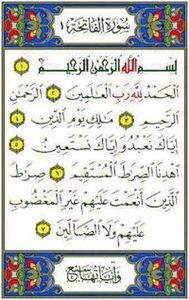 سُورَةُ الْفَاتِحَةِ ١
بِسْمِ اللَّهِ الرَّحْمَٰنِ الرَّحِيمِ ١
الْحَمْدُ لِلَّهِ رَبِّ الْعَٰلَمِينَ ٢ الرَّحْمَٰنِ
الرَّحِيمِ ٣ مَٰلِكِ يَوْمِ الدِّينِ ٤
إِيَّاكَ نَعْبُدُ وَإِيَّاكَ نَسْتَعِينُ ٥
اهْدِنَا الصِّرَاطَ الْمُسْتَقِيمَ ٦ صِرَاطَ
الَّذِينَ أَنْعَمْتَ عَلَيْهِمْ غَيْرِ الْمَغْضُوبِ
عَلَيْهِمْ وَلَا الضَّالِّينَ ٧
وآياتها سبع